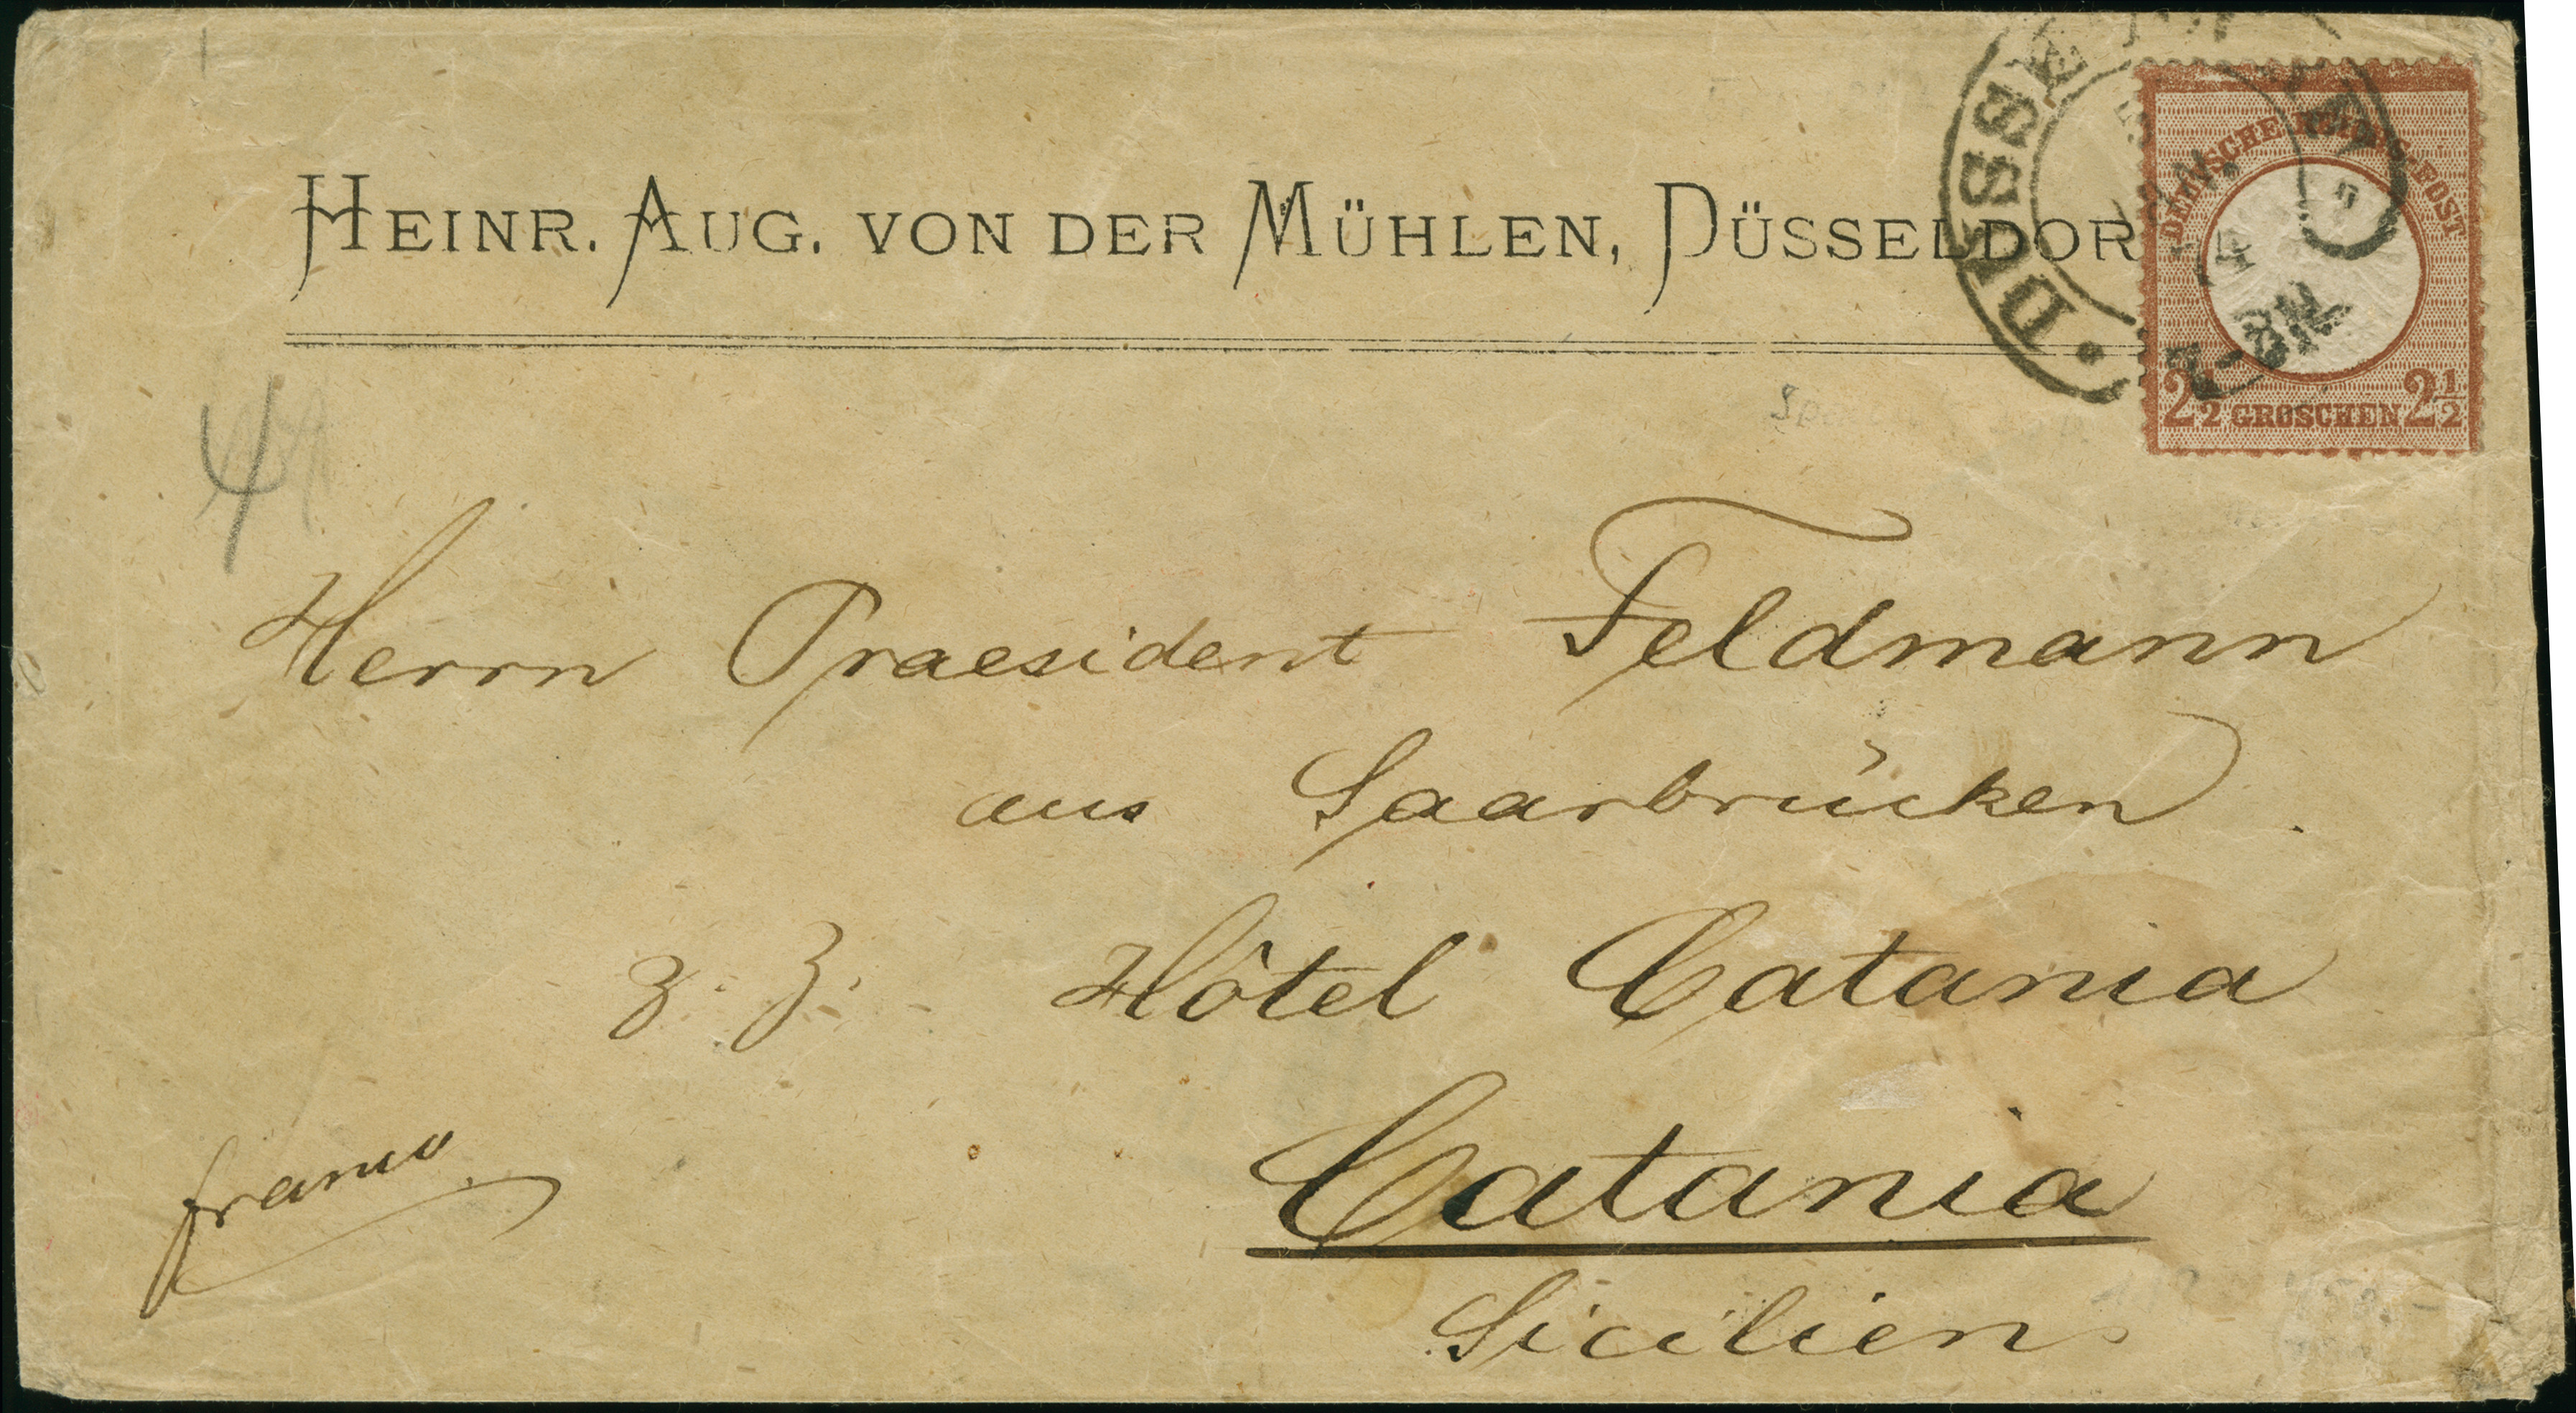 HEINR. AUG. VON DER MÜHLEN, DÜSSELDOR
DEUTSCHE REICHS-POST
2½ GROSCHEN 2½
4
Herrn Praesident Feldmann
aus Saarbrücken.
z. Z. Hôtel Catania
franco
Catania
Sicilien